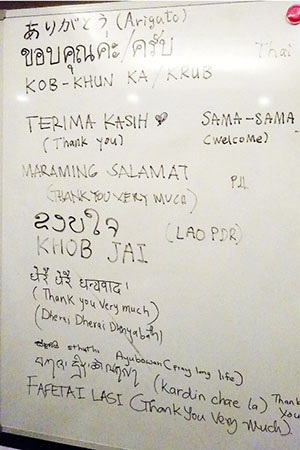 ありがとう (Arigato)
ขอบคุณค่ะ/ครับ Thai
KOB-KHUN KA/KRUB
TERIMA KASIH SAMA-SAMA
(Thank you) (welcome)
MARAMING SALAMAT
(THANK YOU VERY MUCH)
ຂອບໃຈ (LAO PDR)
KHOB JAI
धेरै धेरै धन्यवाद।
(Thank you Very much)
(Dherai Dherai Dhanyabath)
sthuthi Ayubowan (pray long life)
(Kardin chae la) Thank You
FAFETAI LASI (Thank You Very Much).